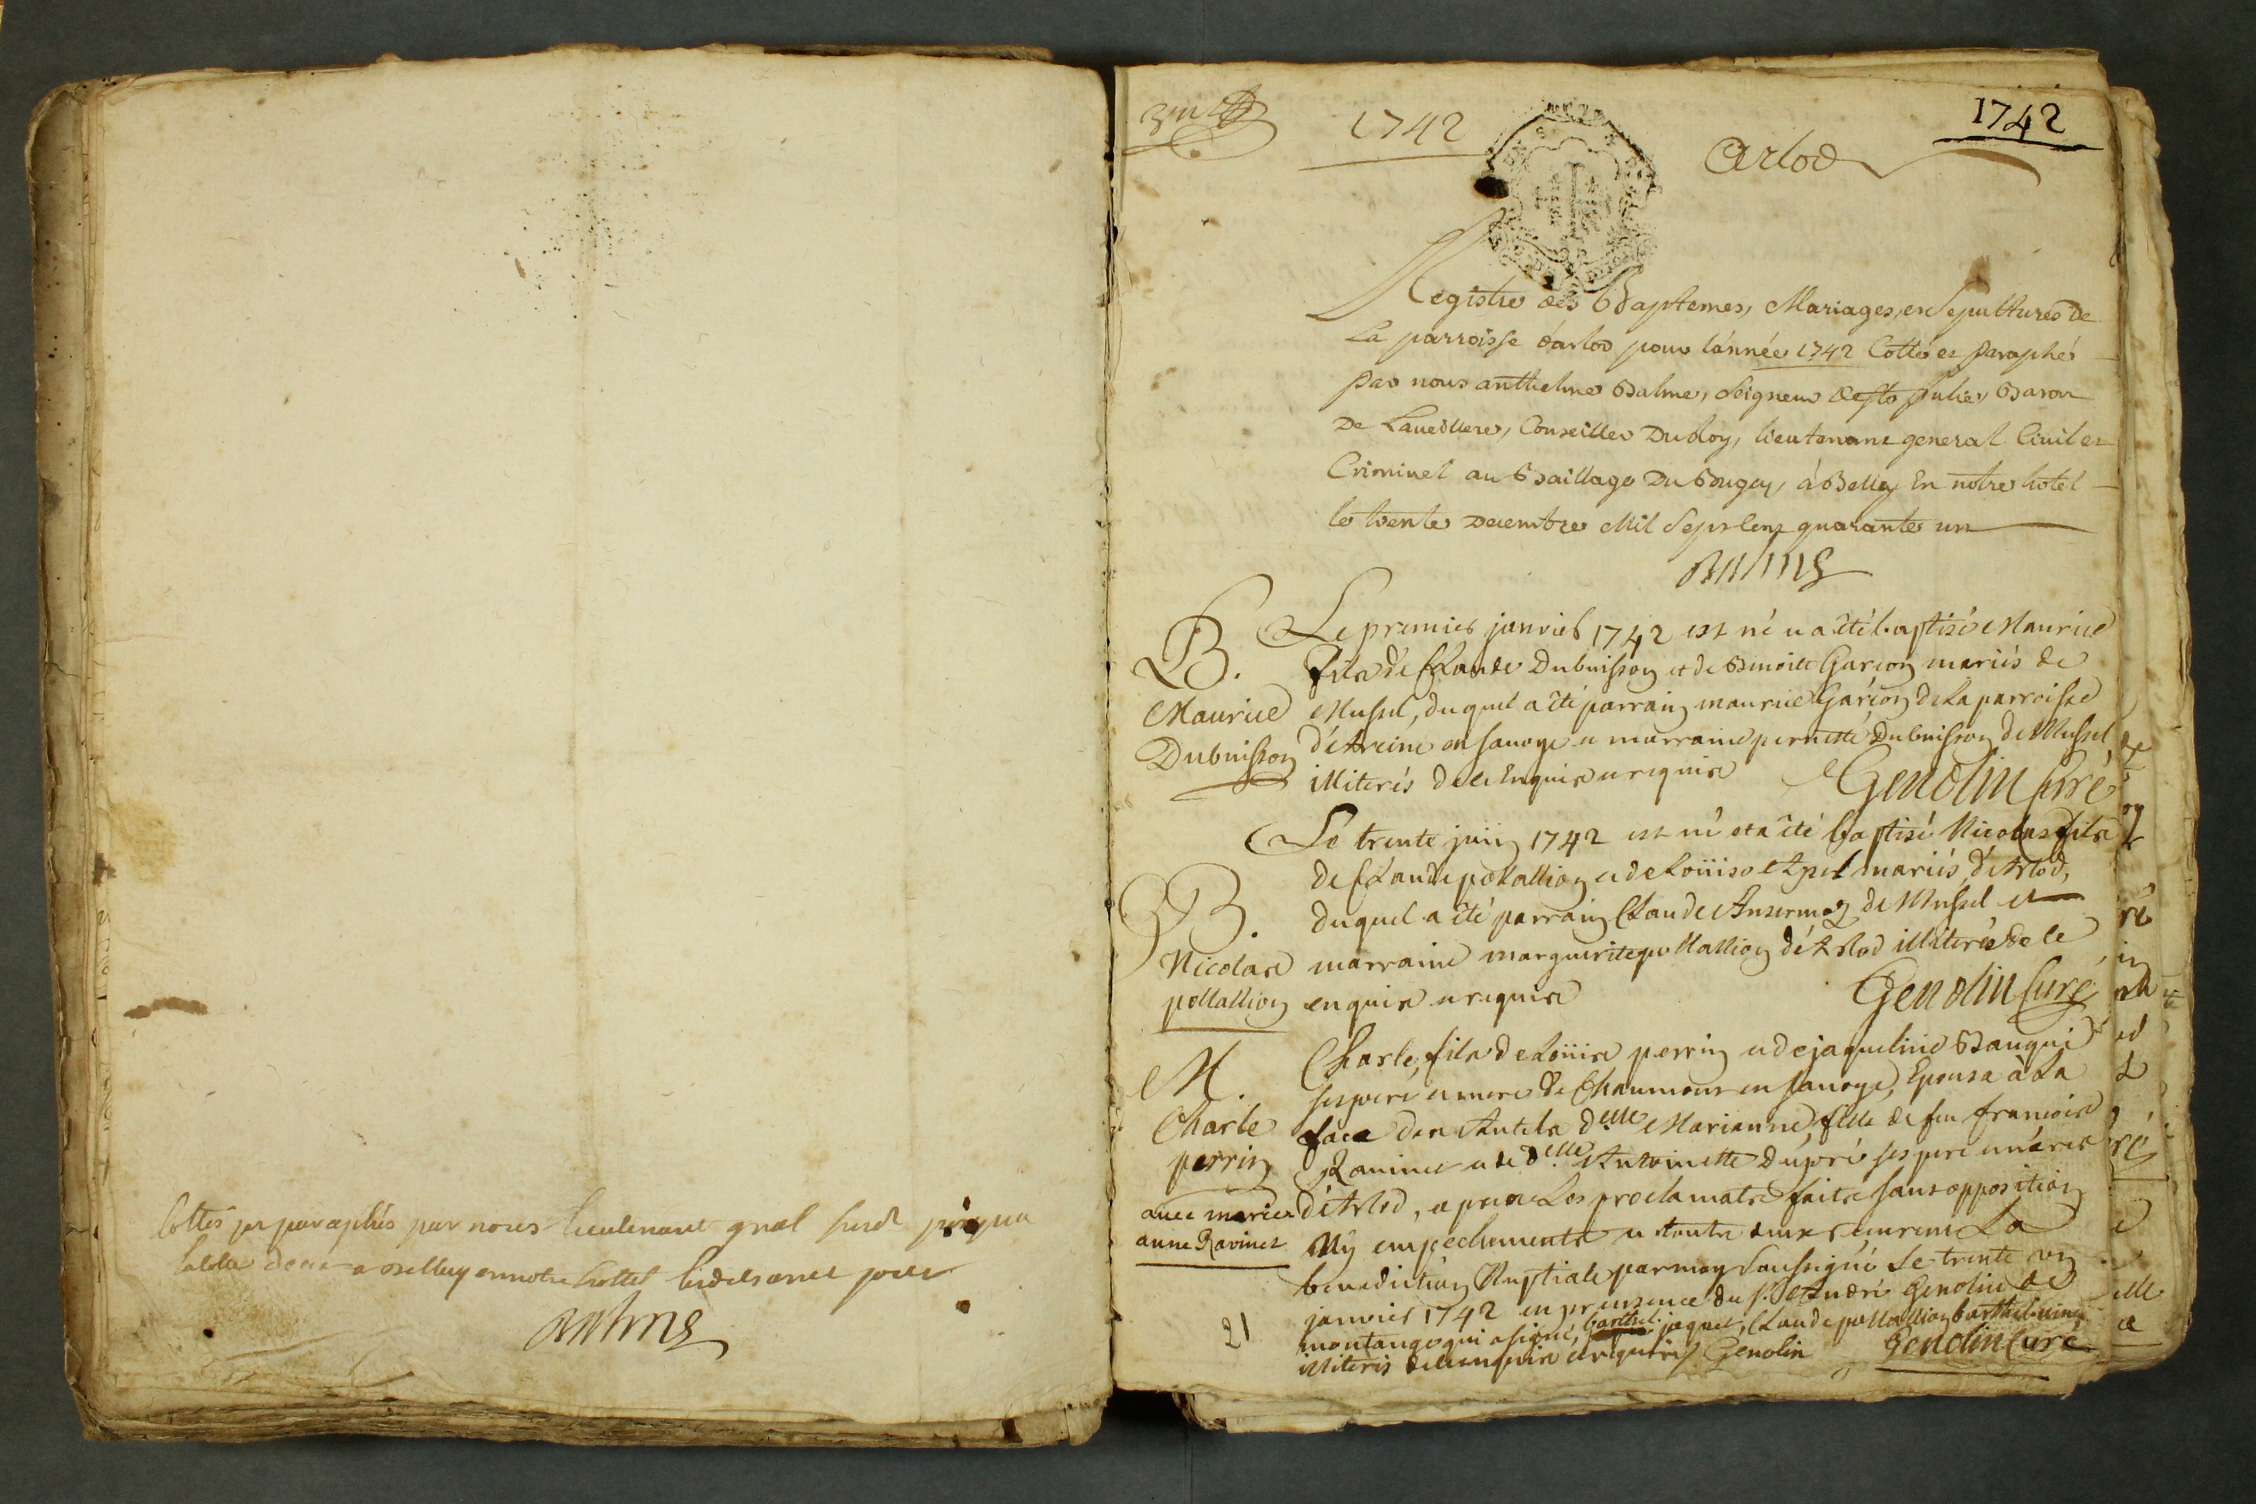 Cottés et paraphés par nous lieutenant gnal
a Belley en notre hottel
Balme
1742
1742
Arlod
Registre des Baptemes, Mariages, et Sepultures de
La parroisse d'arlod pour l'année 1742 Cotté et Paraphés
Par nous anthelme Balme, Seigneur de Ste Julie, Baron
De Conseiller Du Roy, lieutenant general Civil et
Criminel au Baillage Du Bugey, à Belley En notre hotel
le trente Decembre Mil Sept Cent quarante un
Balme
B.
Maurice
Dubuisson
Le premier janvier 1742 est né et a été baptisé Maurice
fils de Claude Dubuisson et de Benoite Garçon mariés de
Mussel, duquel a été parrain maurice Garçon de la parroisse
en savoye et marraine pernette Dubuisson de Mussel
illiterés de ce Enquis et requis Genolin Curé
B.
Nicolas
poNallion
Le trente juin 1742 est né et a été baptisé Nicolas fils
de Claude poNallion et de Loüise mariés d'Arlod,
duquel a été parrain Claude Ansermoz de Mussel et
marraine marguerite poNallion d'Arlod illiterés de ce
enquis et requis Genolin Curé
M.
Charle
perrin
avec marie
anne Ravinet
21
Charle, fils de Loüis perrin et de jaqueline Baugui
ses pere et mere de Chaumont en savoye, Epousa à La
face des Autels d.elle Marianne, fille de feu francois
Ravinet et de d.elle Antoinette Dupré ses pere et mere
d'Arlod, apres Les proclamats faits sans opposition
Ny empechements et toutes deux recurent La
benediction Nuptiale par moy Soussigné Le trente un
janvier 1742 en presence du s.r André Genolin de
montange qui a signé, jaquet, Claude poNallion
illiteris de ce enquis et requis Genolin Genolin Curé